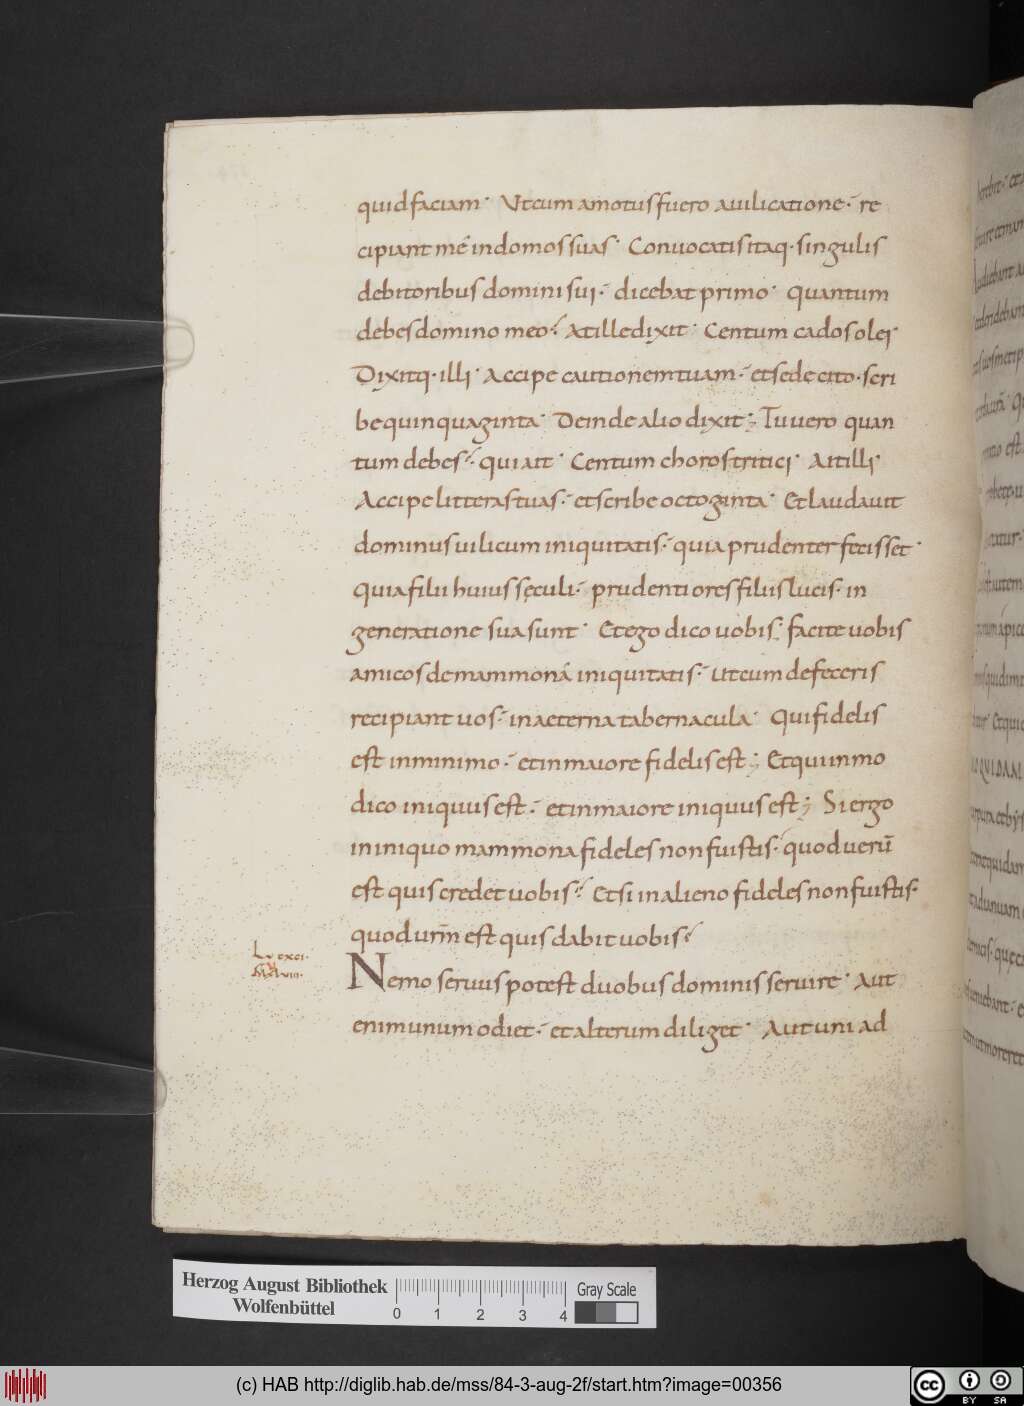 quid faciam· Ut cum amotus fuero a uilicatione· re
cipiant me in domos suas· Conuocatis itaq· singulis
debitoribus domini sui· dicebat primo· Quantum
debes domino meo? At ille dixit· Centum cados olei·
Dixitq· illi· Accipe cautionem tuam· et sede cito· scri
be quinquaginta· Deinde alio dixit; Tu uero quan
tum debes? qui ait· Centum choros tritici· Ait illi·
Accipe litteras tuas· et scribe octoginta· Et laudauit
dominus uilicum iniquitatis· quia prudenter fecisset·
Quia filii huius sęculi· prudentiores filiis lucis· in
generatione sua sunt· Et ego dico uobis; facite uobis
amicos de mammona iniquitatis· ut cum defeceris
recipiant uos· in aeterna tabernacula· Qui fidelis
est in minimo· et in maiore fidelis est; Et qui in mo
dico iniquus est· et in maiore iniquus est; Si ergo
in iniquo mammona fideles non fuistis· quod uerū
est quis credet uobis? Et si in alieno fideles non fuistis·
quod urm̄ est quis dabit uobis?
L͞u cxci·
Nemo seruus potest duobus dominis seruire· Aut
enim unum odiet· et alterum diliget· Aut uni ad
Herzog August Bibliothek
Wolfenbüttel
0 1 2 3 4
Gray Scale
(c) HAB http://diglib.hab.de/mss/84-3-aug-2f/start.htm?image=00356
cc BY SA